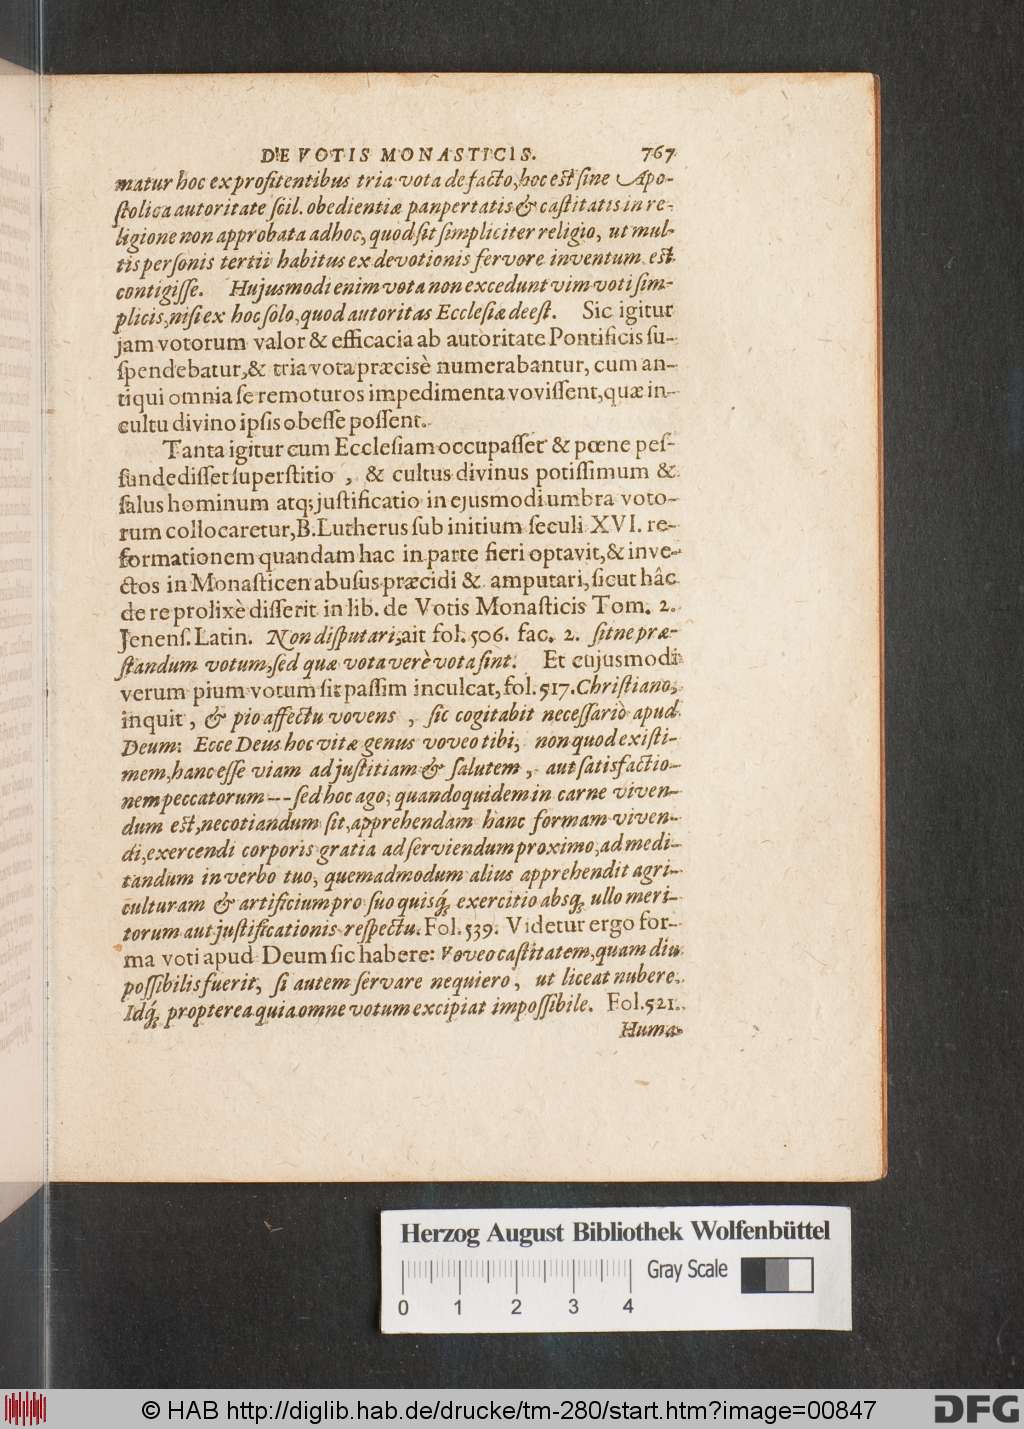 DE VOTIS MONASTICIS. 767
matur hoc ex profitentibus tria vota de facto, hoc est sine Apo-
stolica autoritate scil. obedientiæ panpertatis & castitatis in re-
ligione non approbata ad hoc, quod sit simpliciter religio, ut mul-
tis personis tertii habitus ex devotionis fervore inventum est
contigisse. Hujusmodi enim vota non excedunt vim voti sim-
plicis, nisi ex hoc solo, quod autoritas Ecclesiæ deest. Sic igitur
jam votorum valor & efficacia ab autoritate Pontificis su-
spendebatur, & tria vota præcisè numerabantur, cum an-
tiqui omnia se remoturos impedimenta vovissent, quæ in
cultu divino ipsis obesse possent.
Tanta igitur cum Ecclesiam occupasset & pœne pes-
sundedisset superstitio, & cultus divinus potissimum &
salus hominum atq; justificatio in ejusmodi umbra voto-
rum collocaretur, B. Lutherus sub initium seculi XVI. re-
formationem quandam hac in parte fieri optavit, & inve-
ctos in Monasticen abusus præcidi & amputari, sicut hâc
de re prolixè disserit in lib. de Votis Monasticis Tom. 2.
Jenens. Latin. Non disputari, ait fol. 506. fac. 2. sitne præ-
standum votum, sed quæ vota verè vota sint. Et cujusmodi
verum pium votum sit passim inculcat, fol. 517. Christiano,
inquit, & pio affectu vovens, sic cogitabit necessariò apud
Deum: Ecce Deus hoc vitæ genus voveo tibi, non quod existi-
mem, hanc esse viam ad justitiam & salutem, aut satisfactio-
nem peccatorum --- sed hoc ago, quandoquidem in carne viven-
dum est, nec otiandum sit, apprehendam hanc formam viven-
di, exercendi corporis gratia ad serviendum proximo, ad medi-
tandum in verbo tuo, quemadmodum alius apprehendit agri-
culturam & artificium pro suo quisq; exercitio absq; ullo meri-
torum aut justificationis respectu. Fol. 539. Videtur ergo for-
ma voti apud Deum sic habere: Voveo castitatem, quam diu
possibilis fuerit, si autem servare nequiero, ut liceat nubere.
Idq; propterea quia omne votum excipiat impossibile. Fol. 521.
Huma-
Herzog August Bibliothek Wolfenbüttel
Gray Scale
0 1 2 3 4
© HAB http://diglib.hab.de/drucke/tm-280/start.htm?image=00847
DFG